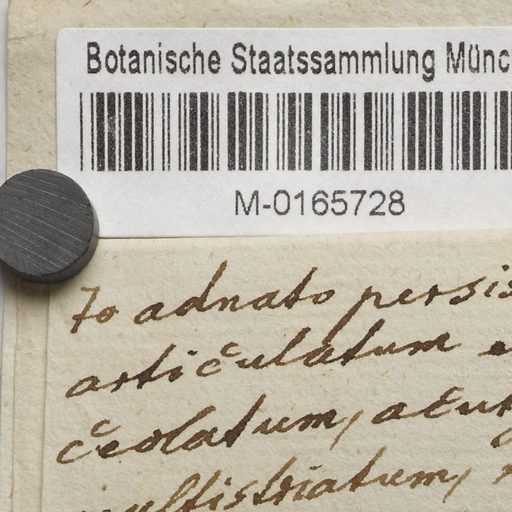 Botanische Staatssammlung Münc
M-0165728
to adnato persis
articulatum e
ceolatum, acut
multistriatum,